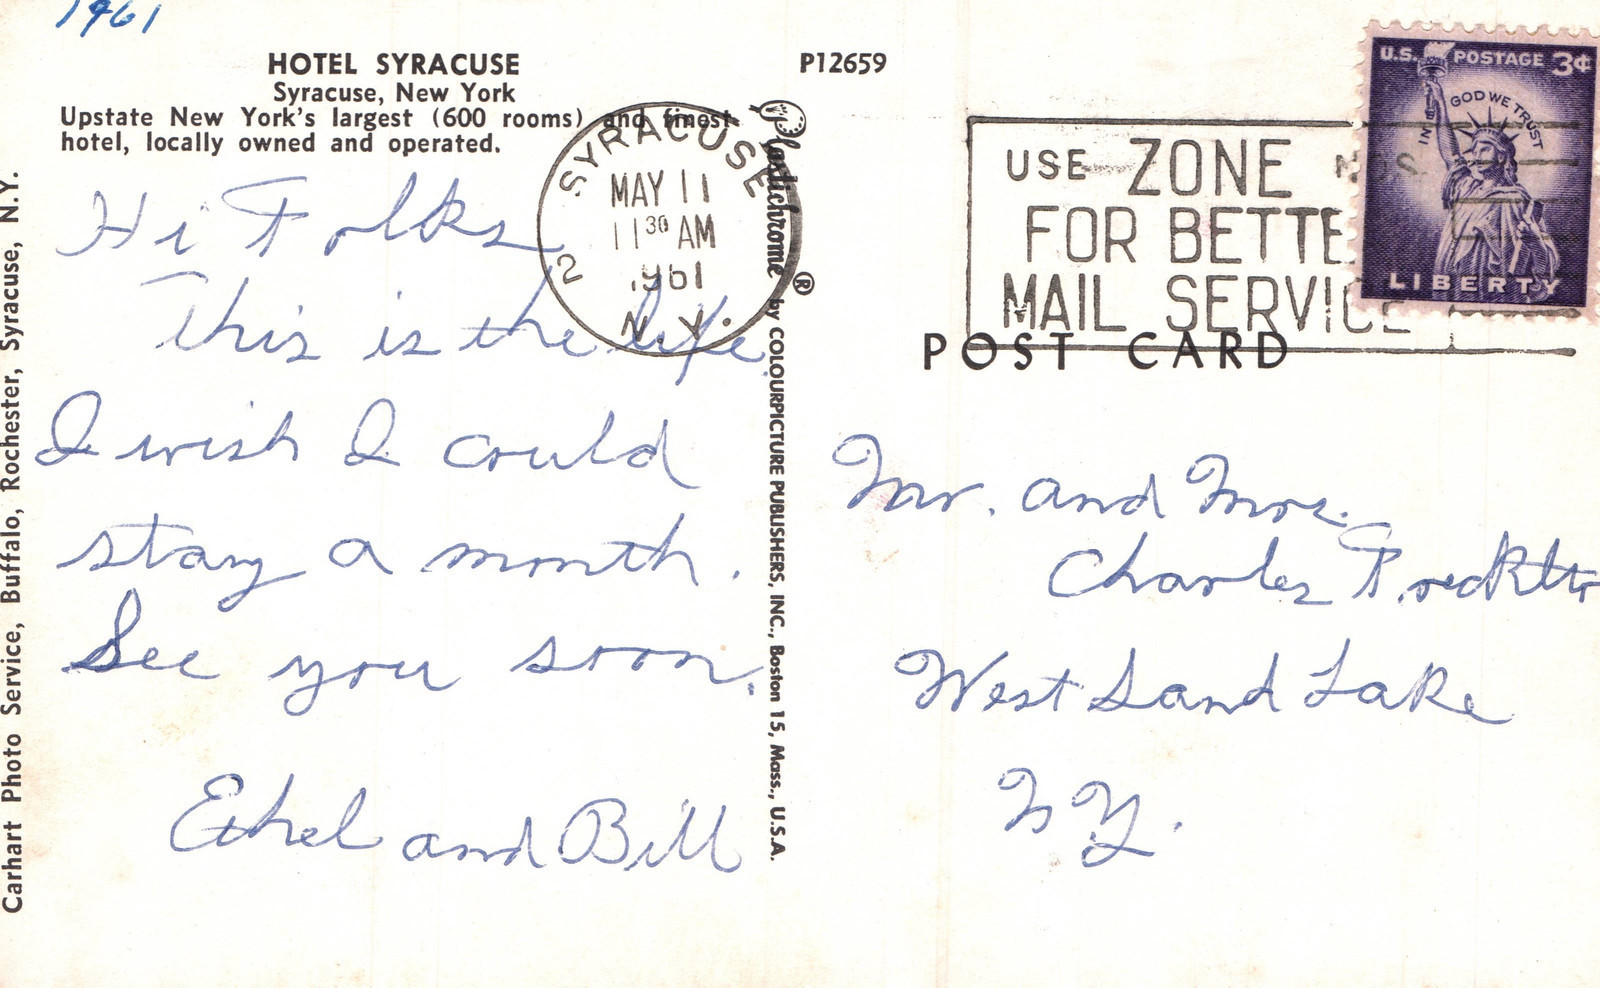 1961
HOTEL SYRACUSE
Syracuse, New York
Upstate New York's largest (600 rooms) and finest
hotel, locally owned and operated.
P12659
Hi Folks
This is the life
I wish I could
stay a month.
See you soon.
Ethel and Bill
Carhart Photo Service, Buffalo, Rochester, Syracuse, N.Y.
SYRACUSE
2
MAY 11
11 30 AM
1961
N.Y.
Plastichrome ® by COLOURPICTURE PUBLISHERS, INC., Boston 15, Mass., U.S.A.
USE ZONE NOS.
FOR BETTE
MAIL SERVICE
U.S. POSTAGE 3¢
IN GOD WE TRUST
LIBERTY
POST CARD
Mr. and Mrs.
Charles
West Sand Lake
N Y.